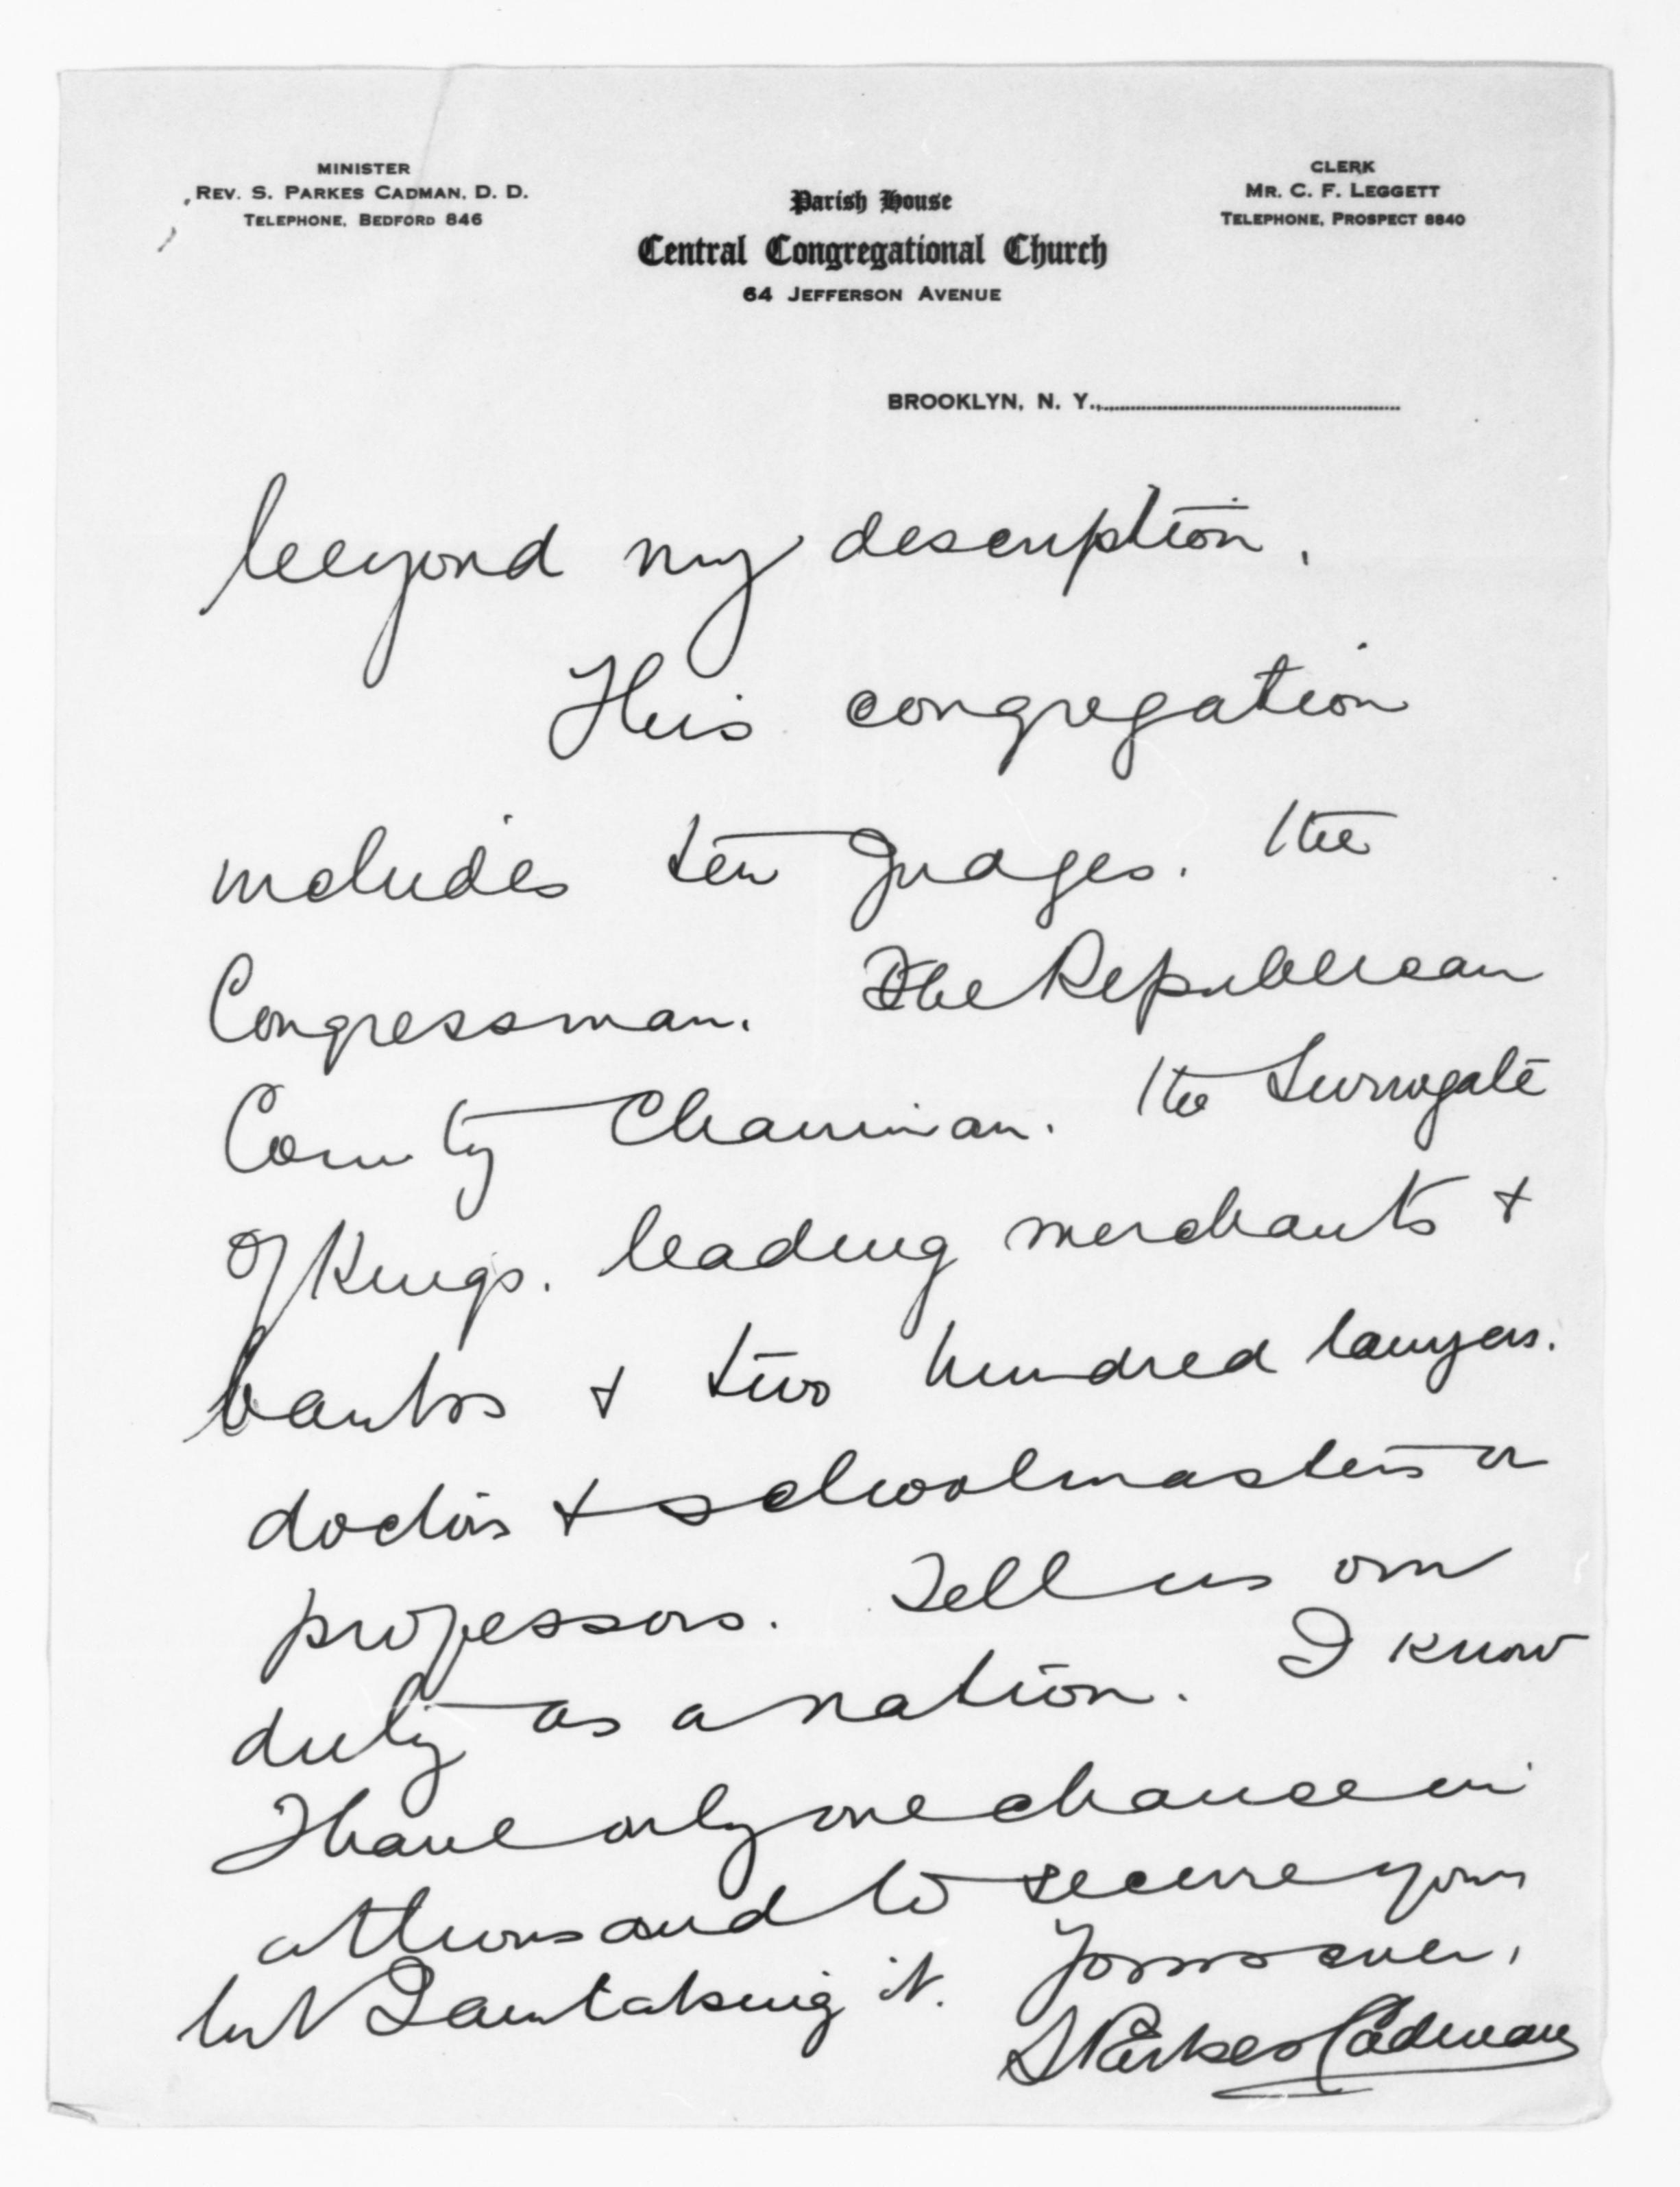 MINISTER
REV. S. PARKES CADMAN, D. D.
TELEPHONE, BEDFORD 846
Parish House
Central Congregational Church
64 JEFFERSON AVENUE
CLERK
MR. C. F. LEGGETT
TELEPHONE, PROSPECT 8840
BROOKLYN, N. Y.,
beyond my description.
This congregation
includes ten Judges. the
Congressman. The Republican
County Chairman. the Surrogate
of Kings. leading merchants +
banks + two hundred lawyers.
doctors + schoolmasters or
professors. Tell us our
duty as a nation. I know
I have only one chance in
a thousand to secure you
but I am taking it. Yours ever,
S Parkes Cadman